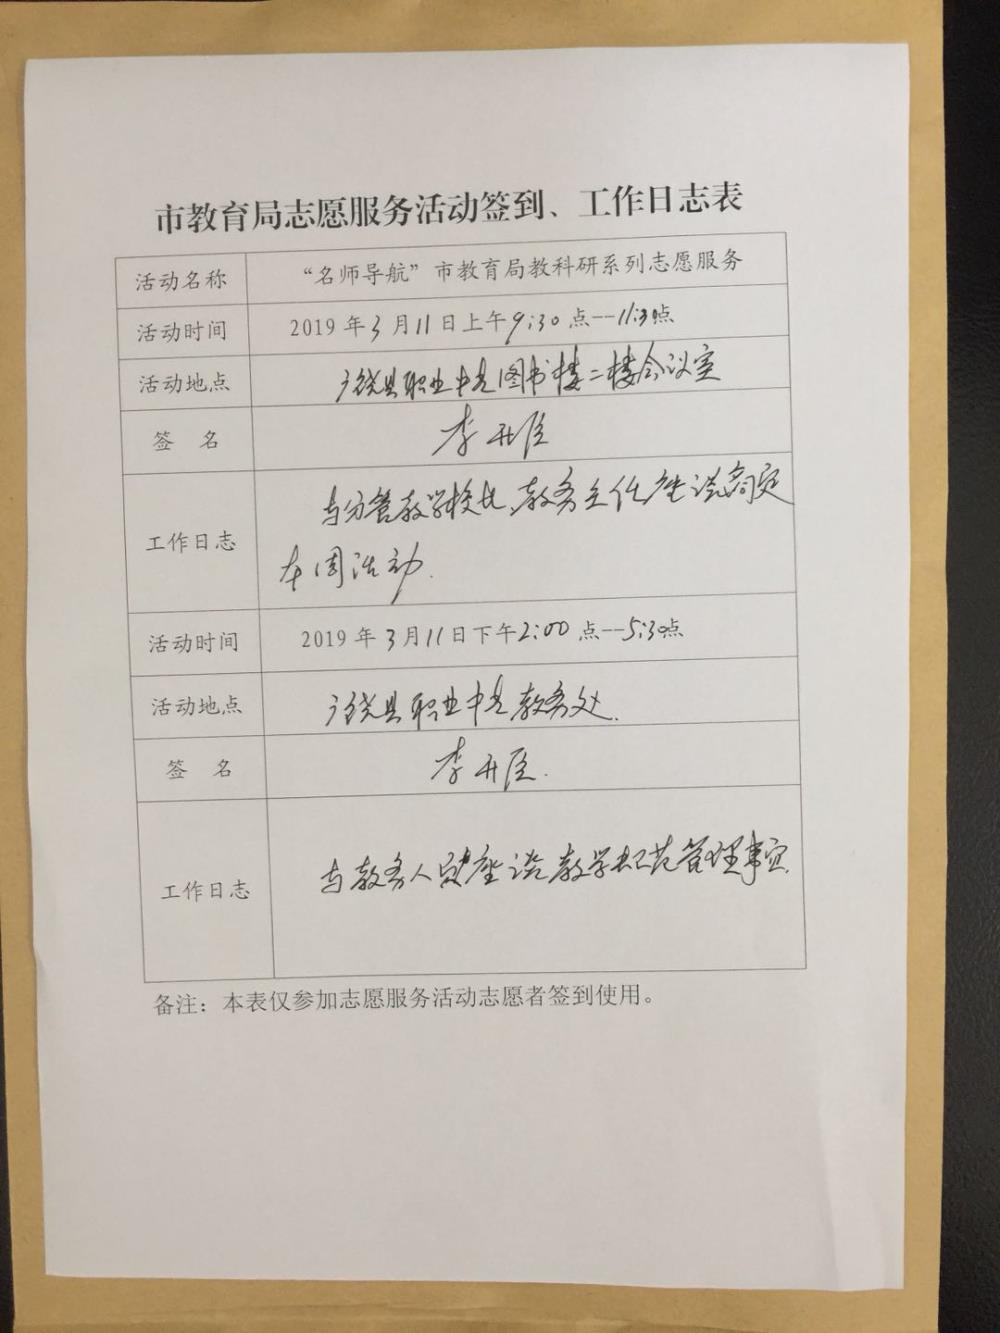 市教育局志愿服务活动签到、工作日志表
活动名称 “名师导航”市教育局教科研系列志愿服务
活动时间 2019年3月11日上午9:30点--11:30点
活动地点 广饶县职业中专图书楼二楼会议室
签 名 李升
工作日志 与分管教学校长、教务主任座谈商定
本周活动.
活动时间 2019年3月11日下午2:00点--5:30点
活动地点 广饶县职业中专教务处.
签 名 李升
工作日志 与教务人员座谈教学规范管理事宜.
备注：本表仅参加志愿服务活动志愿者签到使用。